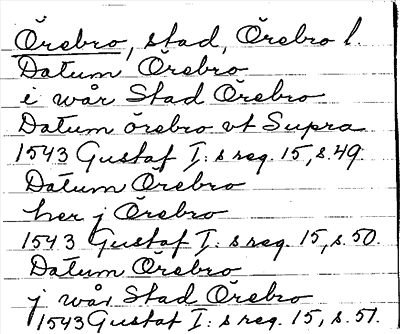 Örebro, stad, Örebro l.
Datum Örebro
i wår Stad Örebro
Datum örebro vt Supra
1543 Gustaf I: s reg. 15, s. 49.
Datum Örebro
her j Örebro
1543 Gustaf I: s reg. 15, s. 50.
Datum Örebro
j wår Stad Örebro
1543 Gustaf I: s reg. 15, s. 51.